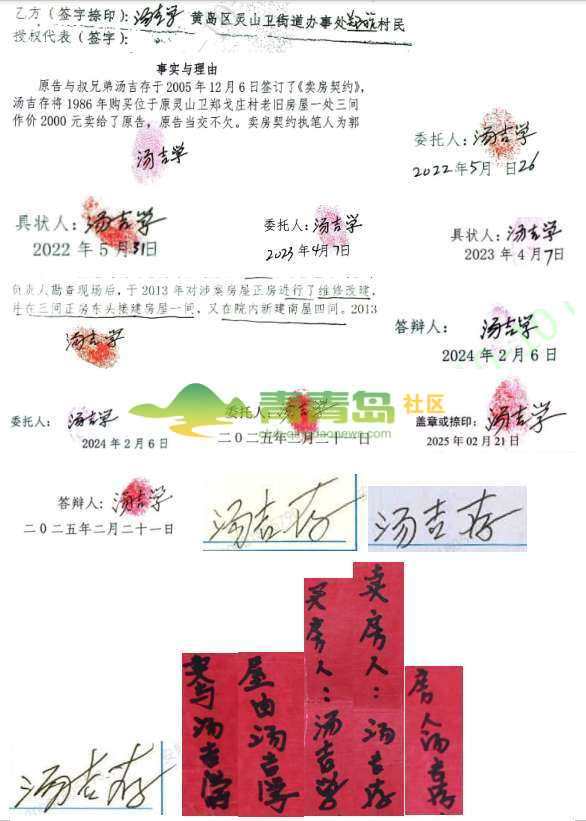 乙方（签字捺印）：汤吉学 黄岛区灵山卫街道办事处村民
授权代表（签字）：
事实与理由
原告与叔兄弟汤吉存于2005年12月6日签订了《卖房契约》，
汤吉存将1986年购买位于原灵山卫郑戈庄村老旧房屋一处三间
作价2000元卖给了原告，原告当交不欠。卖房契约执笔人为郭
汤吉学
委托人：汤吉学
2022年5月 日26
具状人：汤吉学
2022年5月31日
委托人：汤吉学
2023年4月7日
具状人：汤吉学
2023年4月7日
负责人勘查现场后，于2013年对涉案房屋正房进行了维修改建，
并在三间正房东头接建房屋一间，又在院内新建南屋四间。2013
汤吉学
答辩人：汤吉学
2024年2月6日
委托人：汤吉学
2024年2月6日
青青岛社区
委托人：汤吉学
二〇二五年二月二十一日
盖章或捺印：汤吉学
2025年02月21日
答辩人：汤吉学
二〇二五年二月二十一日
汤吉存
汤吉存
汤吉存
汤吉学
屋由汤吉学
买房人：汤吉学
卖房人：汤吉存
房人汤吉存